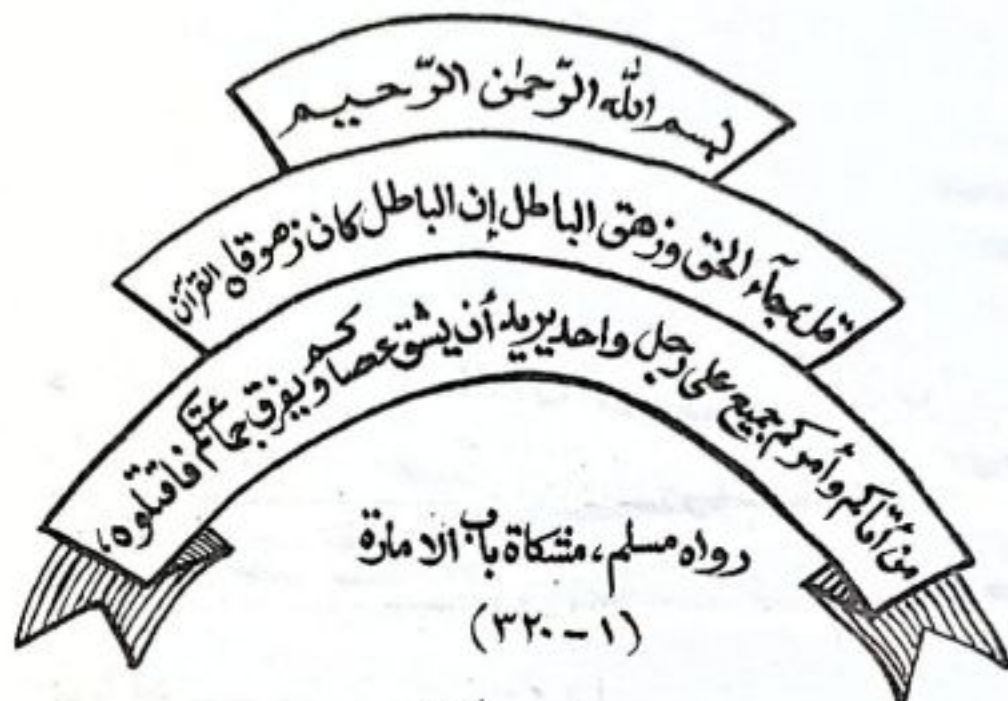 بسم الله الرّحمٰن الرّحيم
قل جآء الحق وزهق الباطل إن الباطل كان زهوقاه القرآن
من أتاكم وأمركم جميع على رجل واحد يريد أن يشق عصاكم ويفرق جماعتكم فاقتلوه،
رواه مسلم، مشكاة باب الامارة
(١ - ٣٢٠)